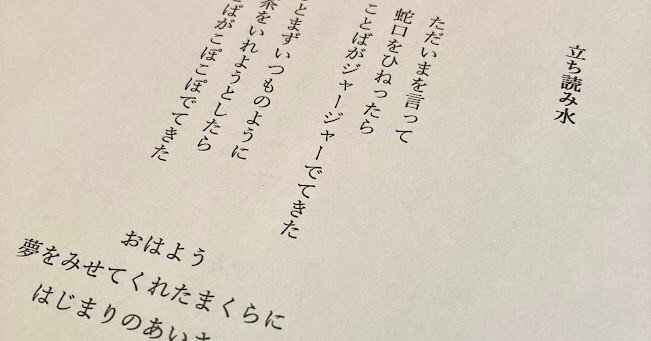 立ち読み水
ただいまを言って
蛇口をひねったら
ことばがジャージャーでてきた
とまずいつものように
茶をいれようとしたら
ばがこぽこぽでてきた
おはよう
夢をみせてくれたまくらに
はじまりのあいさ